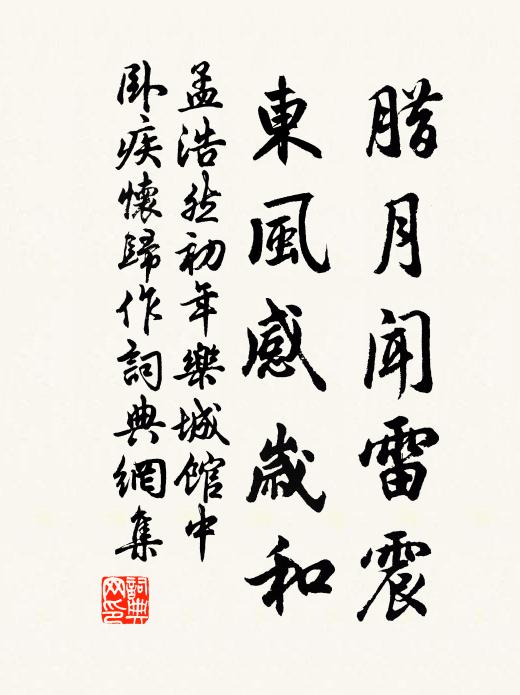 腊月闻雷震
東風感歲和
孟浩然初年樂城館中
卧疾懷歸作詞典網集
詞典
网印